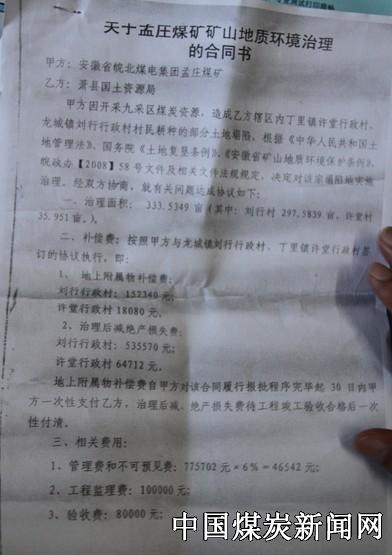 关于孟庄煤矿矿山地质环境治理
的合同书
甲方：安徽省皖北煤电集团孟庄煤矿
乙方：萧县国土资源局
甲方因开采九采区煤炭资源，造成乙方辖区内丁里镇许堂行政村、
龙城镇刘行行政村村民耕种的部分土地塌陷，根据《中华人民共和国土
地管理法》、国务院《土地复垦条例》、《安徽省矿山地质环境保护条例》、
皖政办【2008】58号文件及相关文件法规规定，决定对该宗塌陷地实施
治理。经双方协商，就有关问题达成协议如下：
一、治理面积：333.5349亩（其中：刘行村297.5839亩，许堂村
35.951亩。）。
二、补偿费：按照甲方与龙城镇刘行行政村、丁里镇许堂行政村签
订的协议执行，即：
1、地上附属物补偿费：
刘行行政村：152340元；
许堂行政村18080元。
2、治理后减绝产损失费：
刘行行政村：535570元；
许堂行政村64712元。
地上附属物补偿费自甲方对该合同履行报批程序完毕起30日内甲
方一次性支付乙方，治理后减、绝产损失费待工程竣工验收合格后一次
性付清。
三、相关费用：
1、管理费和不可预见费：775702元×6%=46542元；
2、工程监理费：100000元；
3、验收费：80000元；
中国煤炭新闻网